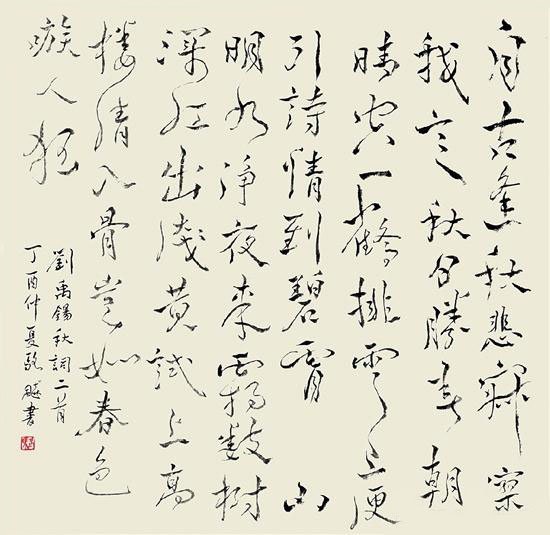 自古逢秋悲寂寥
我言秋日勝春朝
晴空一鶴排雲上便
引詩情到碧霄 山
明水淨夜來霜數樹
深紅出淺黃試上高
樓清入骨豈如春色
嗾人狂
劉禹錫秋詞二首
丁酉仲夏書